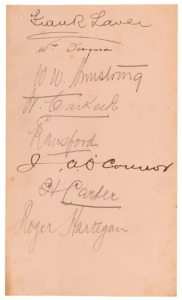 Frank Laver
Wm Ferguson
W. W. Armstrong
W. Carkeek
Ransford
J. A. O'Connor
H Carter
Roger Hartigan